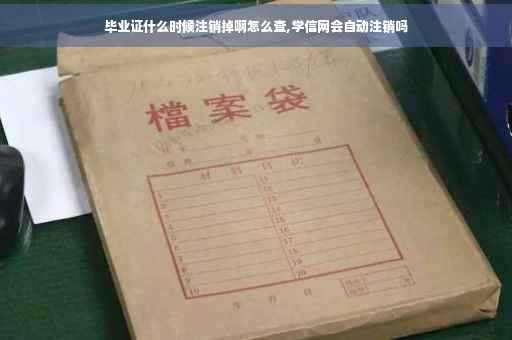 毕业证什么时候注销掉啊怎么查,学信网会自动注销吗
檔案袋
材料目次
1
2
3
4
5
6
7
8
9
10
11
12
13
14
15
16
17
18
19
20
年 月 日